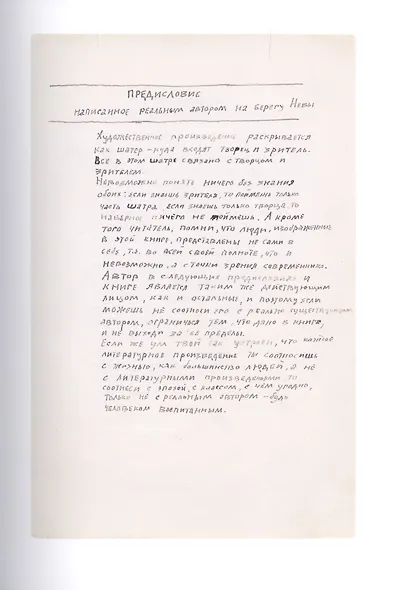 ПРЕДИСЛОВИЕ
написанное реальным автором на берегу Невы
Художественное произведение раскрывается
как шатер – куда входят творец и зритель.
Все в этом шатре связано с творцом и
зрителем.
Невозможно понять ничего без знания
обоих: если знаешь зрителя, то поймешь только
часть шатра, если знаешь только творца, то
наверное ничего не поймешь. А кроме
того читатель, помни, что люди, изображенные
в этой книге, представлены не сами в
себе, т.е. во всей своей полноте, что и
невозможно, а с точки зрения современника.
Автор в следующих предисловиях и
книге является таким же действующим
лицом, как и остальные, и поэтому если
можешь не соотноси его с реально существующим
автором, ограничься тем, что дано в книге,
и не выходи за ее пределы.
Если же ум твой так устроен, что каждое
литературное произведение ты соотносишь
с жизнью, как большинство людей, а не
с литературными произведениями то
соотнеси с эпохой, с классом, с чем угодно,
только не с реальным автором – будь
человеком воспитанным.